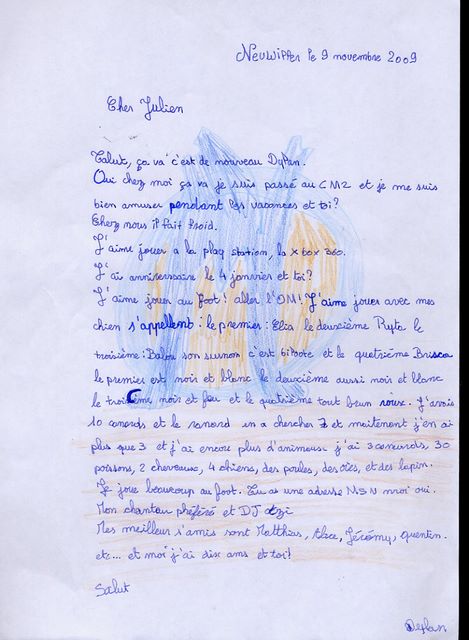 Neuwiller le 9 novembre 2009
Cher Julien
Salut, ça va c'est de nouveau Dylan.
Oui chez moi ça va je suis passé au CM2 et je me suis
bien amuser pendant les vacances et toi?
Chez nous il fait froid.
J'aime jouer a la play station, la x box 360.
J'ai anniversaire le 4 janvier et toi?
J'aime jouer au foot! aller l'OM! J'aime jouer avec mes
chien s'appellent : le premier : Elia le deuxième Ryta le
troisième : Balou son surnom c'est biloute et le quatrième Brisca
le premier est noir et blanc le deuxième aussi noir et blanc
le troisième noir et feu et le quatrième tout brun roux. J'avais
10 canards et le renard en a chercher 7 et maitenent j'en ai
plus que 3 et j'ai encore plus d'animeux. j'ai 3 canards, 30
poissons, 2 cheveaux, 4 chiens, des poules, des oies, et des lapin.
Je joue beaucoup au foot. Tu as une adresse MSN moi oui.
Mon chanteur préféré et DJ otzi
Mes meilleur s'amis sont Matthias, Alex, Jérémy, Quentin.
etc... et moi j'ai dix ans et toi!
Salut
Deylan